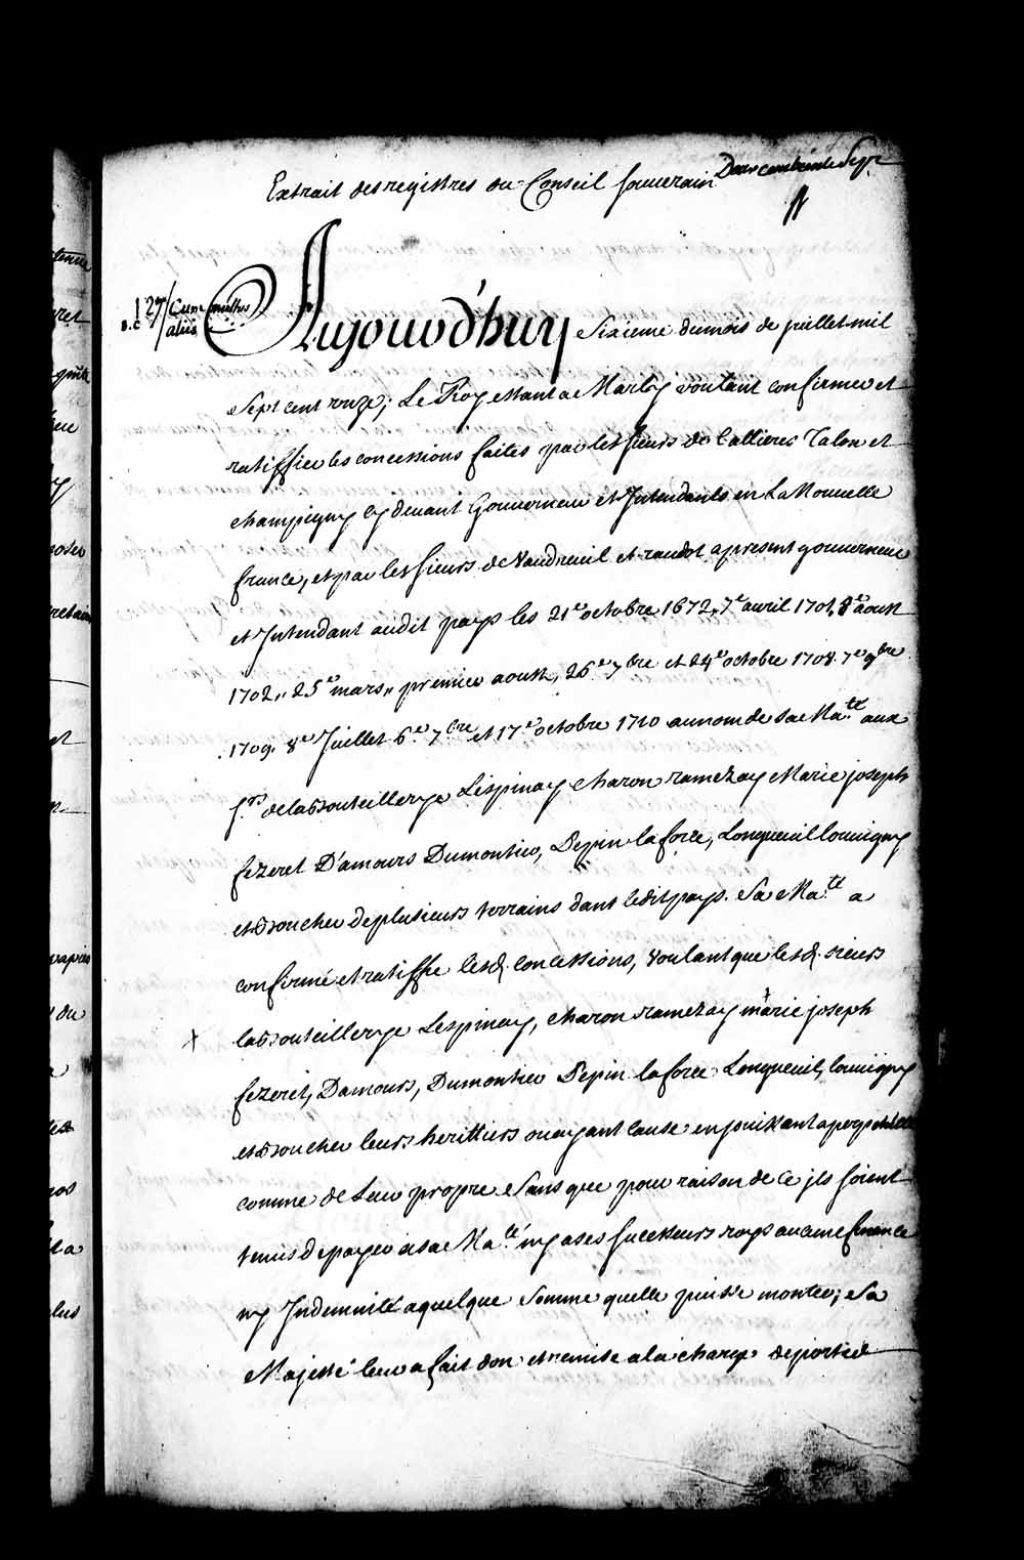 Deux cent trente Sept
Extrait des registres du Conseil souverain
127 / Cum multis
aliis
Aujourd'huy Sixieme du mois de juillet mil
Sept cent onze; Le Roy estant a Marly voulant confirmer et
ratiffier les concessions faites par les sieurs de Callieres Talon et
champigny cy devant Gouverneur et Intendants en La Nouvelle
france, et par les sieurs de Vaudreuil et raudot apresent gouverneur
et Intendant audit pays les 21e octobre 1672, 7e avril 1701, 8e aoust
1702,, 25e mars,, premier aoust, 26e 7bre et 24e octobre 1708. 7e 9bre
1709. 8e Juillet 6e 7bre et 17e octobre 1710 au nom de sa Ma.té aux
srs delabouteillerye Lespinay charon ramezay Marie joseph
fezeret D'amours Dumontier, Pepin laforce, Longueuil louvigny
et Boucher de plusieurs terrains dans ledit pays. Sa Ma.té a
confirmé et ratiffie lesd. concessions, voulant que lesd. sieurs
x labouteillerye Lespinay, charon ramezay marie joseph
fezeret, Damours, Dumontier Pepin laforce Longueuil, louvigny
et Boucher leurs herittiers ou ayant cause en jouissent a perpetuité
comme de Leur propre Sans que pour raison de ce jls soient
tenus de payer a sa Ma.té ny a ses successeurs roys aucune finance
ny Indemnité a quelque Somme quelle puisse monter; Sa
Majesté leur a fait don et remise a la charge de porter
tenue